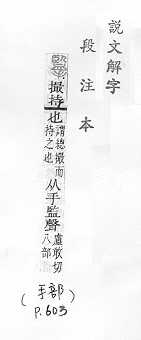 說文解字
段注本
撮持也謂總撮而持之也从手監聲盧敢切八部
(手部)
P.603